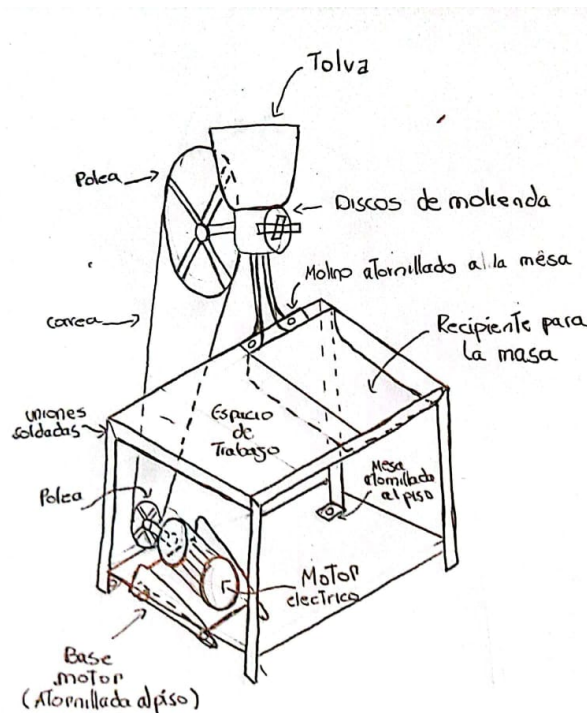 Tolva
Polea
Discos de molienda
Molino atornillado a la mesa
correa
Recipiente para
la masa
uniones
soldadas
Espacio
de
Trabajo
Mesa
atornillado
al piso
Polea
Motor
electrico
Base
motor
(Atornillada al piso)